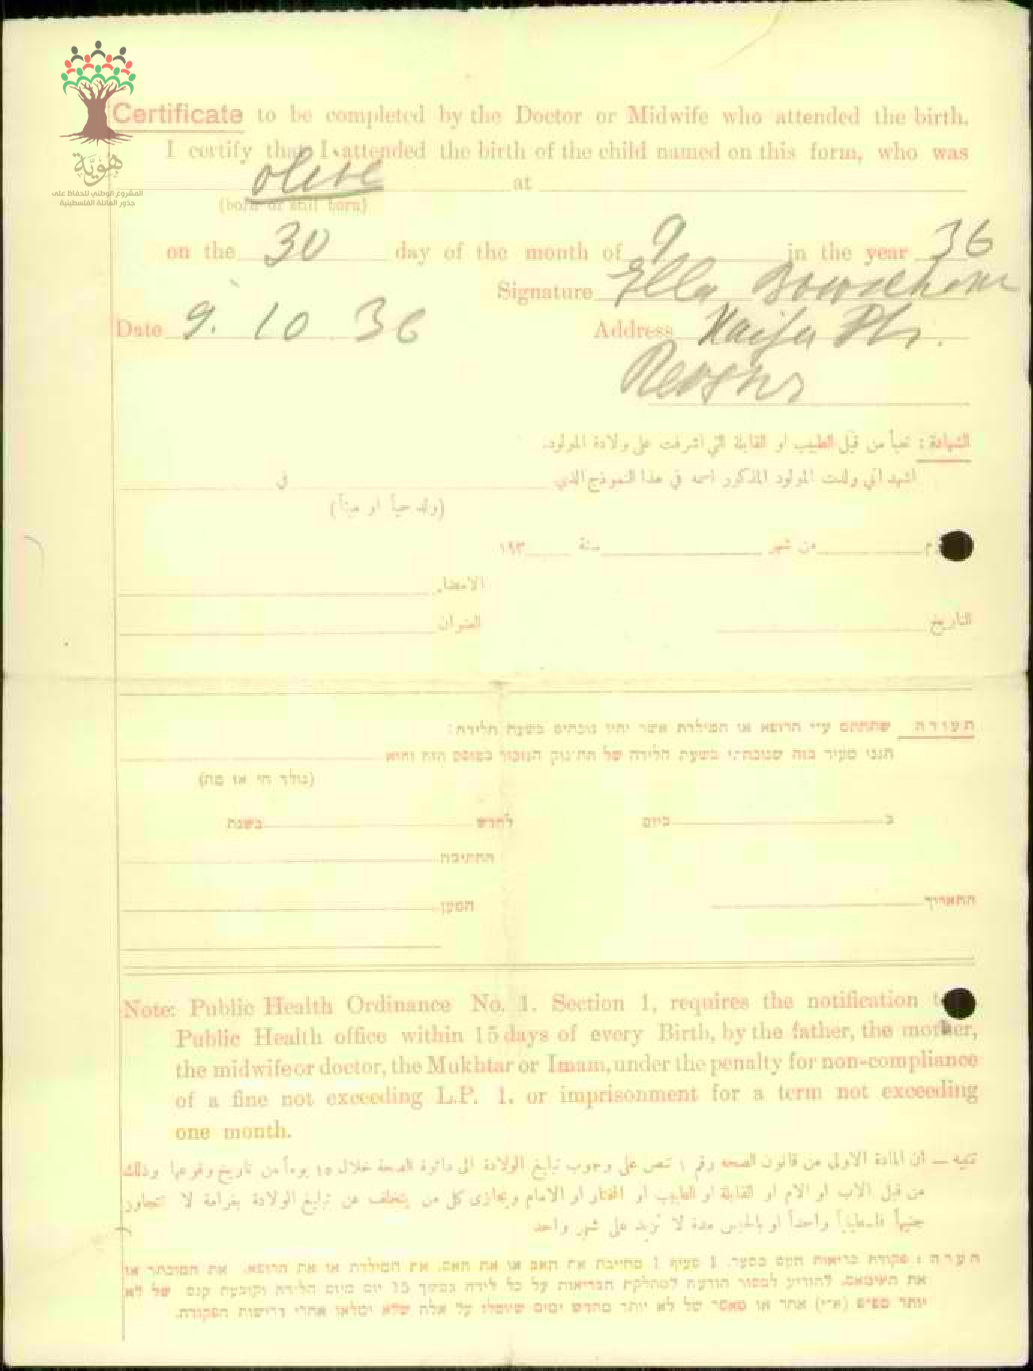 هويّة
المشروع الوطني للحفاظ على
جذور العائلة الفلسطينية
Certificate to be completed by the Doctor or Midwife who attended the birth.
I certify that I attended the birth of the child named on this form, who was
at
(born or still born)
on the 30 day of the month of 9 in the year 36
Signature Ella
Date 9. 10 36 Address Haifa
الشهادة : تعبأ من قبل الطبيب او القابلة التي اشرفت على ولادة المولود.
اشهد اني ولدت المولود المذكور اسمه في هذا النموذج الذي في
(ولد حياً او ميتاً)
من شهر سنة ١٩٣
الامضاء
التاريخ العنوان
תעודה שתחתם ע״י הרופא או המילדת אשר יהיו נוכחים בשעת הלידה:
הנני מעיד בזה שנוכחתי בשעת הלידה של התינוק הנזכר בטופס הזה והוא
(נולד חי או מת)
ב ביום לחדש בשנת
החתימה
התאריך המען
Note: Public Health Ordinance No. 1. Section 1, requires the notification
Public Health office within 15 days of every Birth, by the father, the mother,
the midwife or doctor, the Mukhtar or Imam, under the penalty for non-compliance
of a fine not exceeding L.P. 1. or imprisonment for a term not exceeding
one month.
تنبيه — ان المادة الاولى من قانون الصحة رقم ١ تنص على وجوب تبليغ الولادة الى دائرة الصحة خلال ١٥ يوماً من تاريخ وقوعها وذلك
من قبل الاب او الام او القابلة او الطبيب او المختار او الامام ويجازى كل من يتخلف عن تبليغ الولادة بغرامة لا تتجاوز
جنيهاً فلسطينياً واحداً او بالحبس مدة لا تزيد على شهر واحد
הערה : פקודת בריאות העם מספר 1 סעיף 1 מחייבת את האב או את האם, את המילדת או את הרופא, את המוכתר או
את האימאם, להודיע למסור הודעה למחלקת הבריאות על כל לידה במשך 15 יום מיום הלידה וקובעת קנס של לא
יותר מפונט (א״י) אחד או מאסר של לא יותר מחדש ימים שיוטלו על אלה שלא ימלאו אחרי דרישות הפקודה.